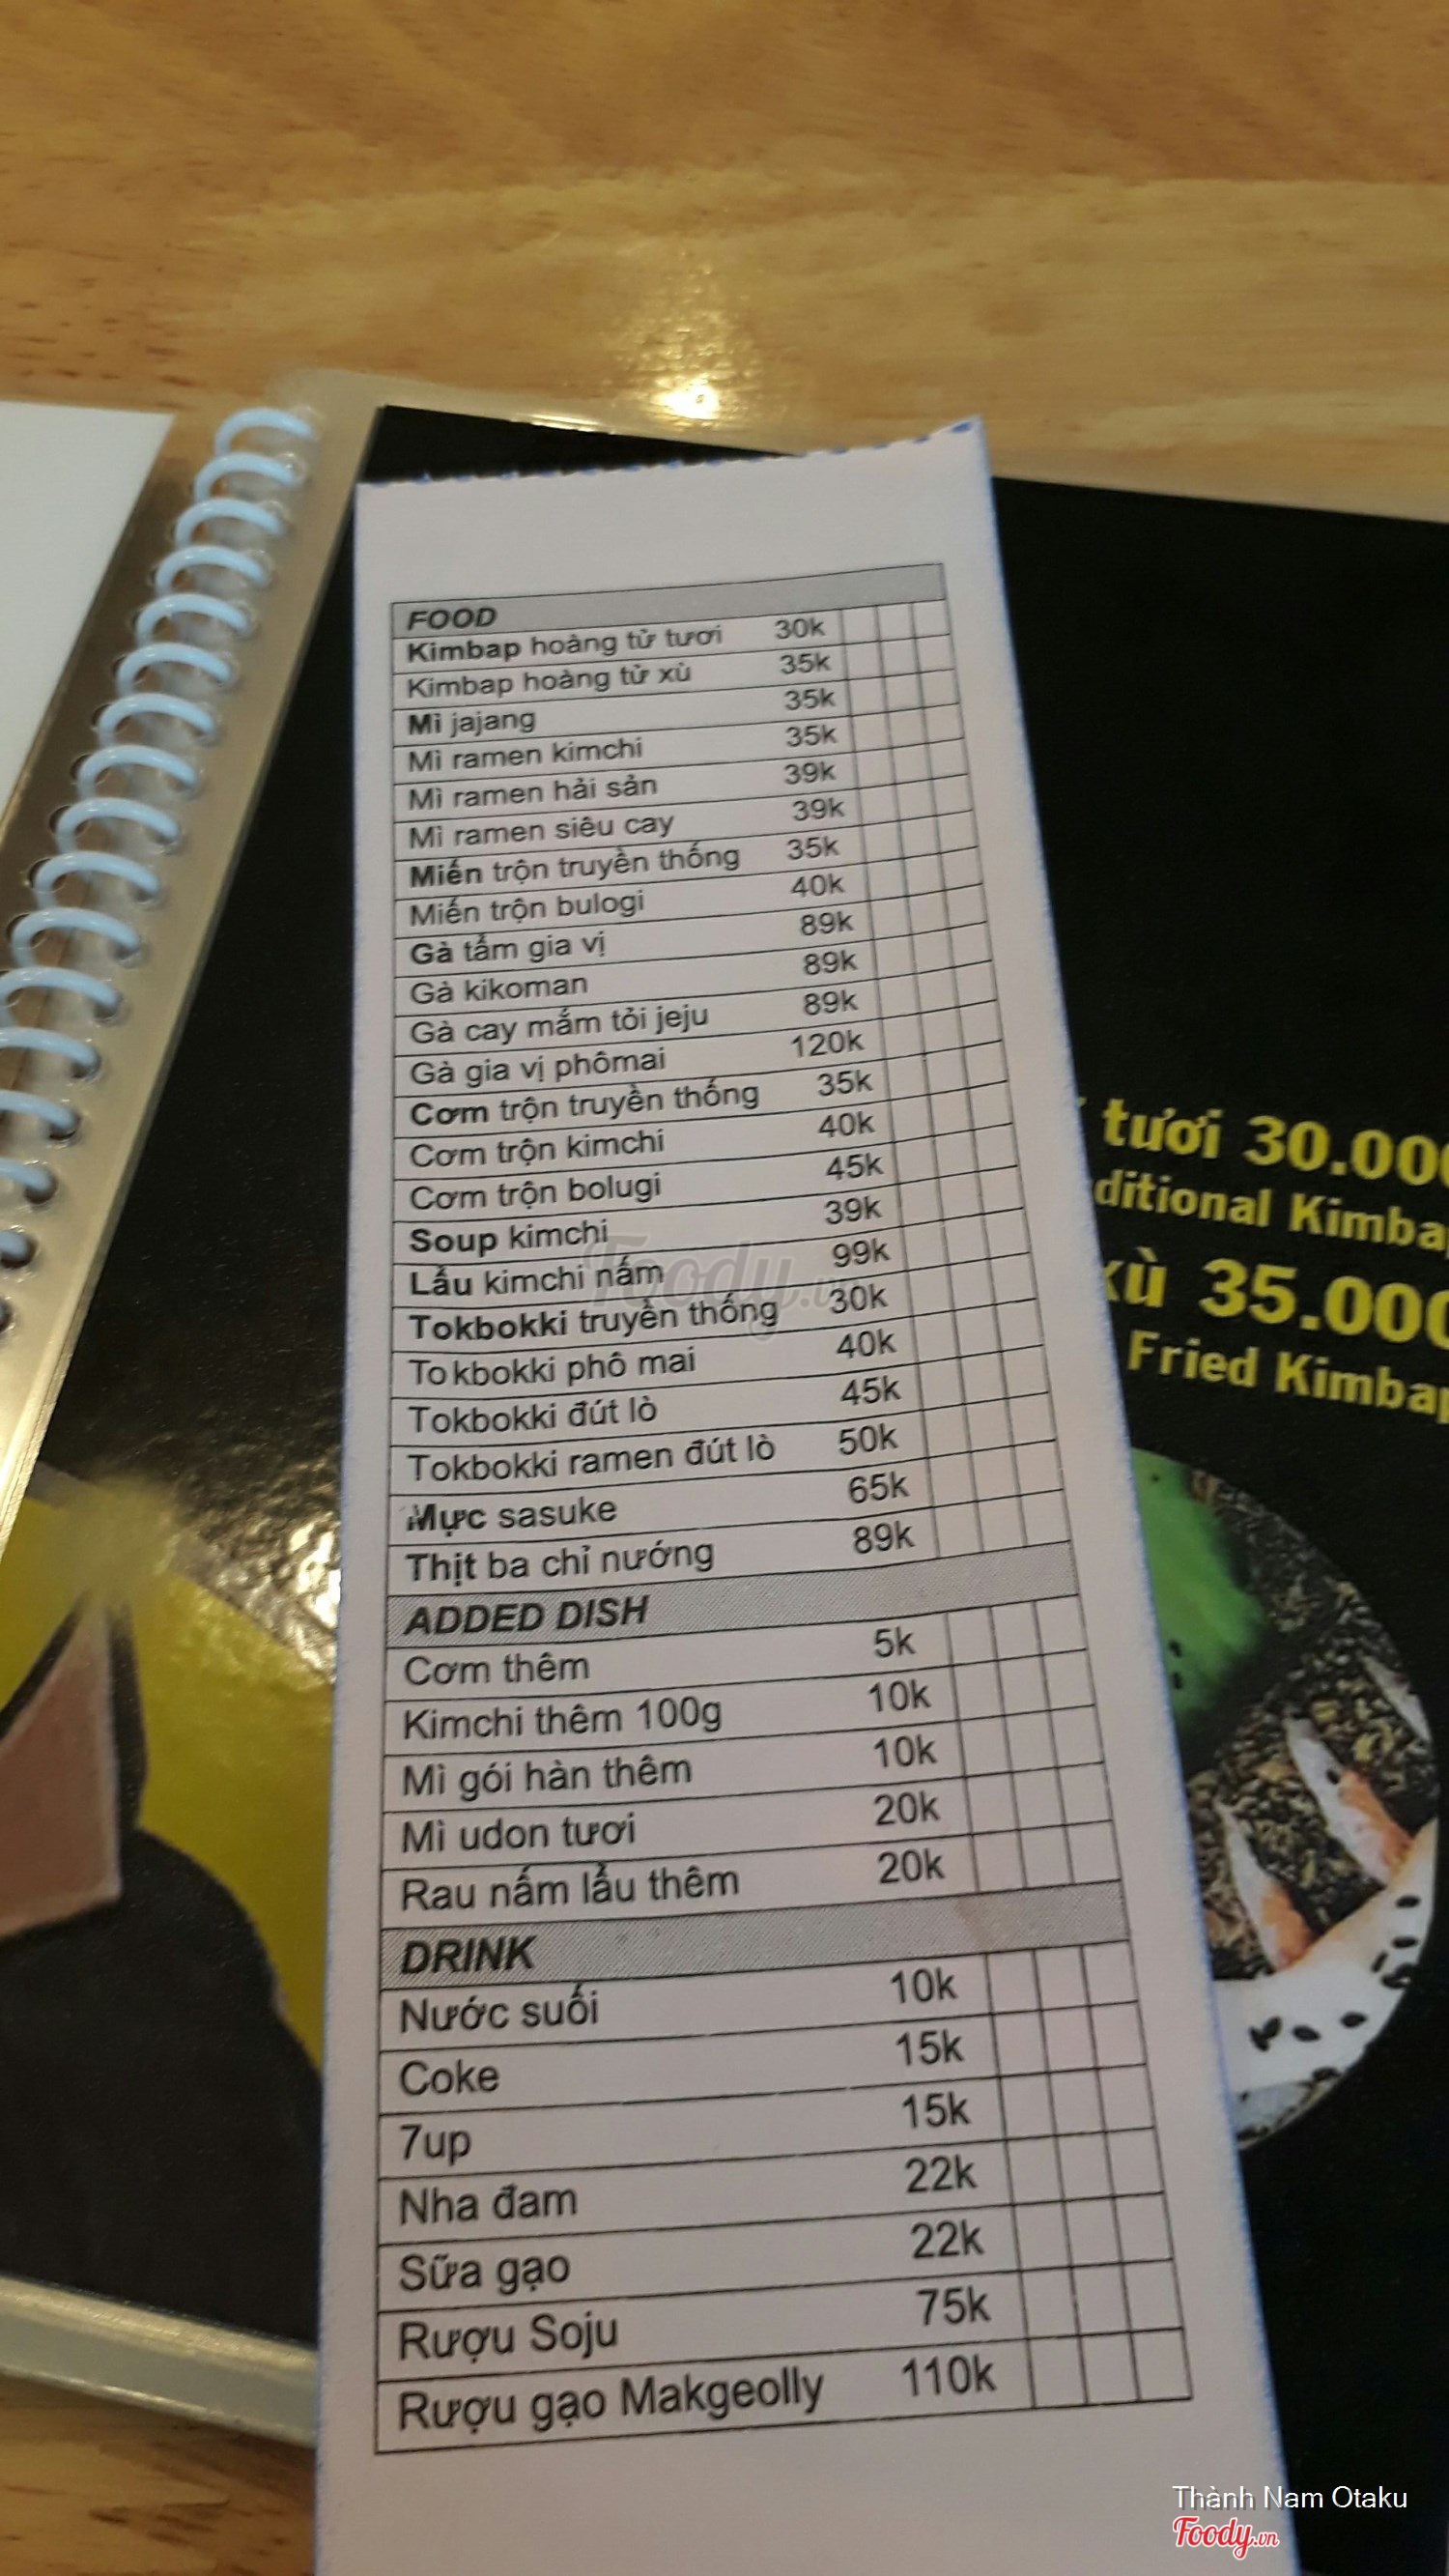 FOOD
Kimbap hoàng tử tươi 30k
Kimbap hoàng tử xù 35k
Mì jajang 35k
Mì ramen kimchi 35k
Mì ramen hải sản 39k
Mì ramen siêu cay 39k
Miến trộn truyền thống 35k
Miến trộn bulogi 40k
Gà tẩm gia vị 89k
Gà kikoman 89k
Gà cay mắm tỏi jeju 89k
Gà gia vị phômai 120k
Cơm trộn truyền thống 35k
Cơm trộn kimchi 40k
Cơm trộn bolugi 45k
Soup kimchi 39k
Lẩu kimchi nấm 99k
Tokbokki truyền thống 30k
Tokbokki phô mai 40k
Tokbokki đút lò 45k
Tokbokki ramen đút lò 50k
Mực sasuke 65k
Thịt ba chỉ nướng 89k
ADDED DISH
Cơm thêm 5k
Kimchi thêm 100g 10k
Mì gói hàn thêm 10k
Mì udon tươi 20k
Rau nấm lẩu thêm 20k
DRINK
Nước suối 10k
Coke 15k
7up 15k
Nha đam 22k
Sữa gạo 22k
Rượu Soju 75k
Rượu gạo Makgeolly 110k
tươi 30.000
ditional Kimba
xù 35.000
Fried Kimbap
Foody.vn
Thành Nam Otaku
Foody.vn